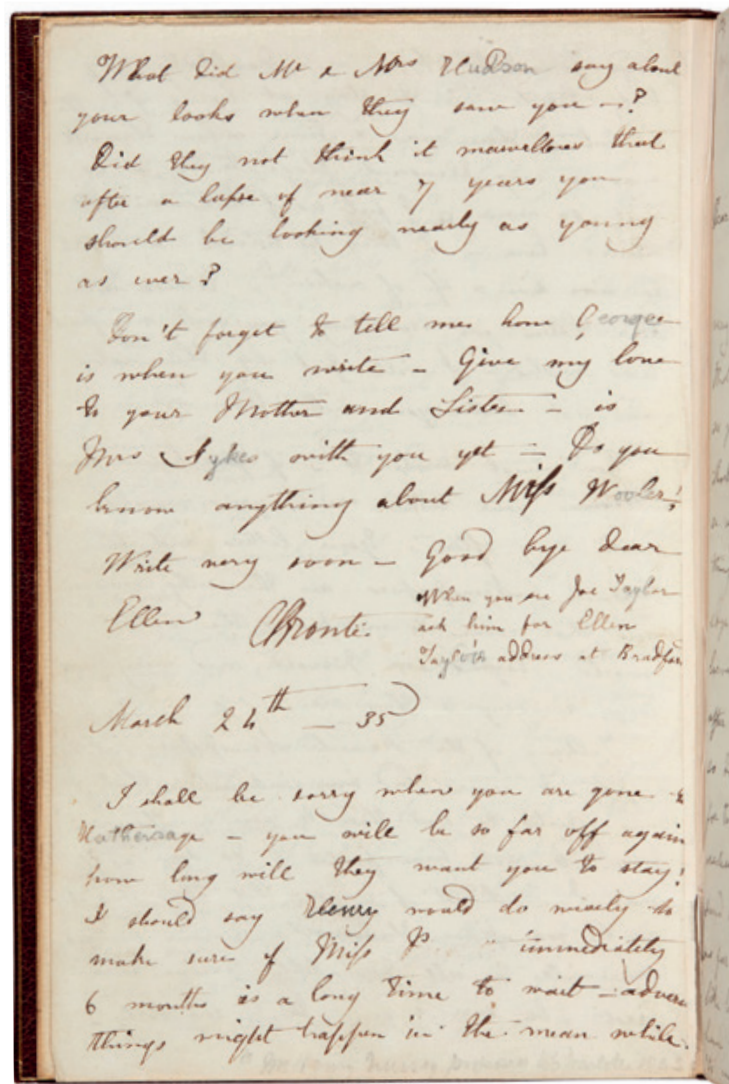 What did Mr & Mrs Hudson say about
your looks when they saw you –?
Did they not think it marvellous that
after a lapse of near 7 years you
should be looking nearly as young
as ever?
Don't forget to tell me how George
is when you write – Give my love
to your Mother and Sisters – is
Mrs Sykes with you yet – Do you
know anything about Miss Wooler?
Write very soon – Good bye dear
Ellen CBrontë
When you see Joe Taylor
ask him for Ellen
Taylor's address at Bradford
March 24th – 35
I shall be sorry when you are gone to
Hathersage – you will be so far off again
how long will they want you to stay?
I should say Henry would do wisely to
make sure of Miss P immediately
6 months is a long time to wait – adverse
things might happen in the mean while.